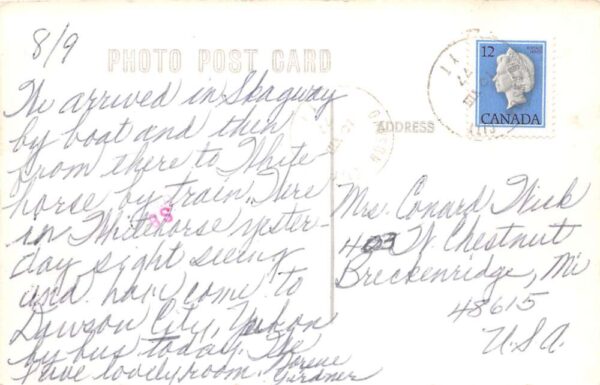 8/9
PHOTO POST CARD
We arrived in Skagway
by boat and then
from there to White-
horse by train. Were
in Whitehorse yester-
day sight seeing
and have come to
Dawson City, Yukon
by bus today. We
have lovely room.
Lorene
Gardner
ADDRESS
12
CANADA
Mrs. Conard Fisk
403 W. Chestnut
Breckenridge, Mi
48615
U.S.A.